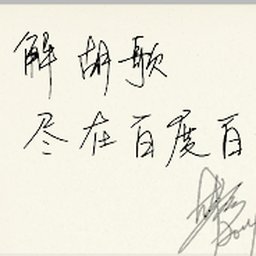 解胡歌
尽在百度百